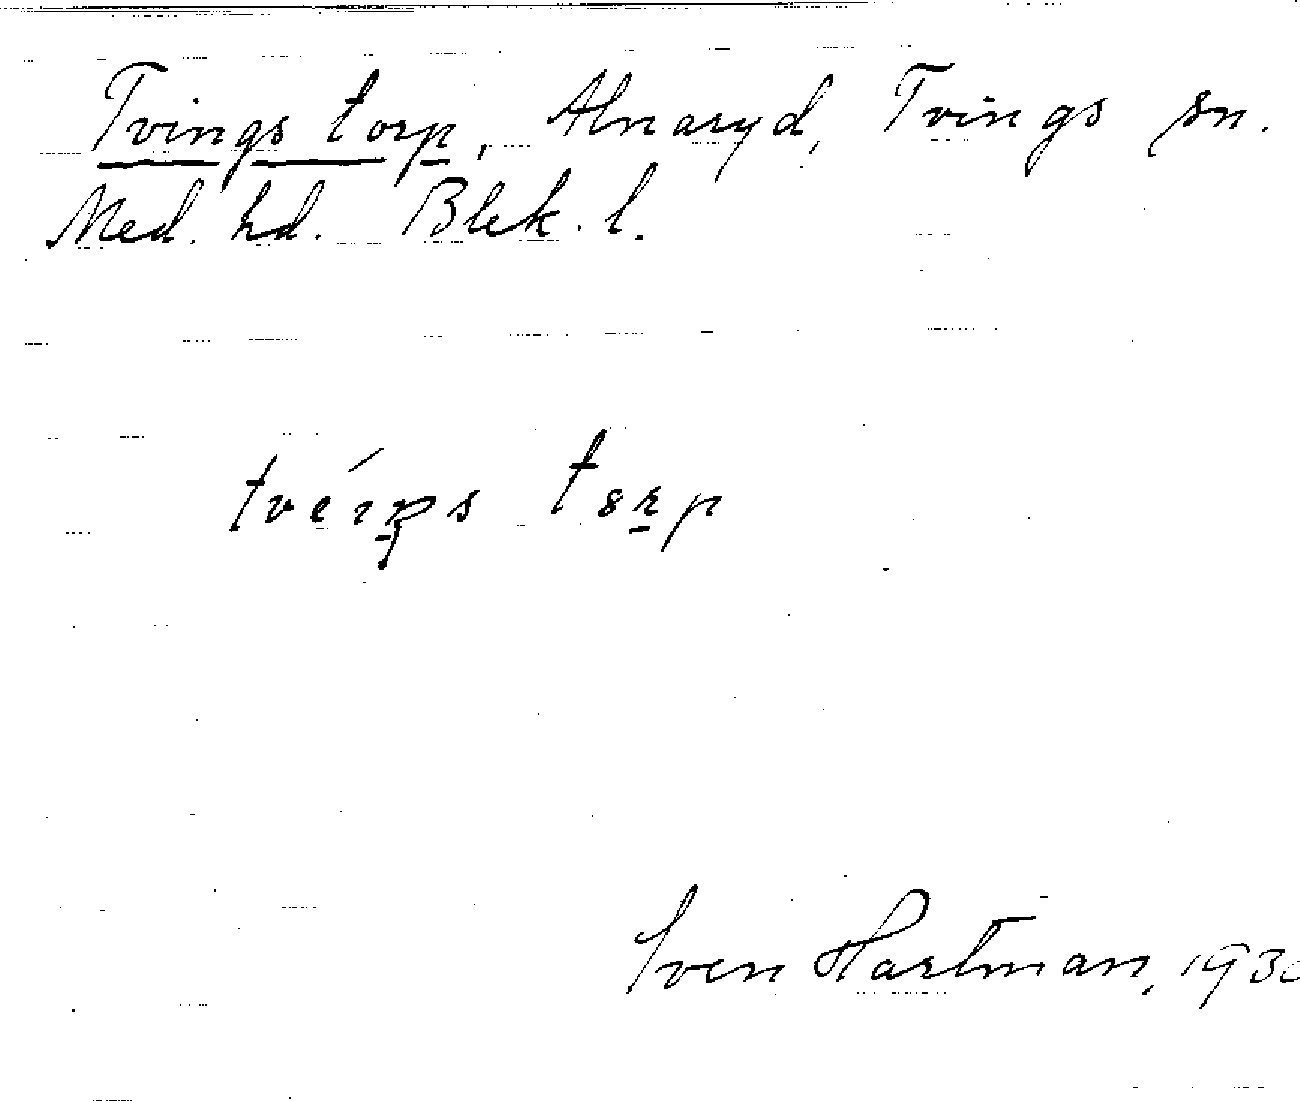 Tvings torp, Alnaryd, Tvings sn.
Med. hd. Blek. l.
Sven Hartman, 193